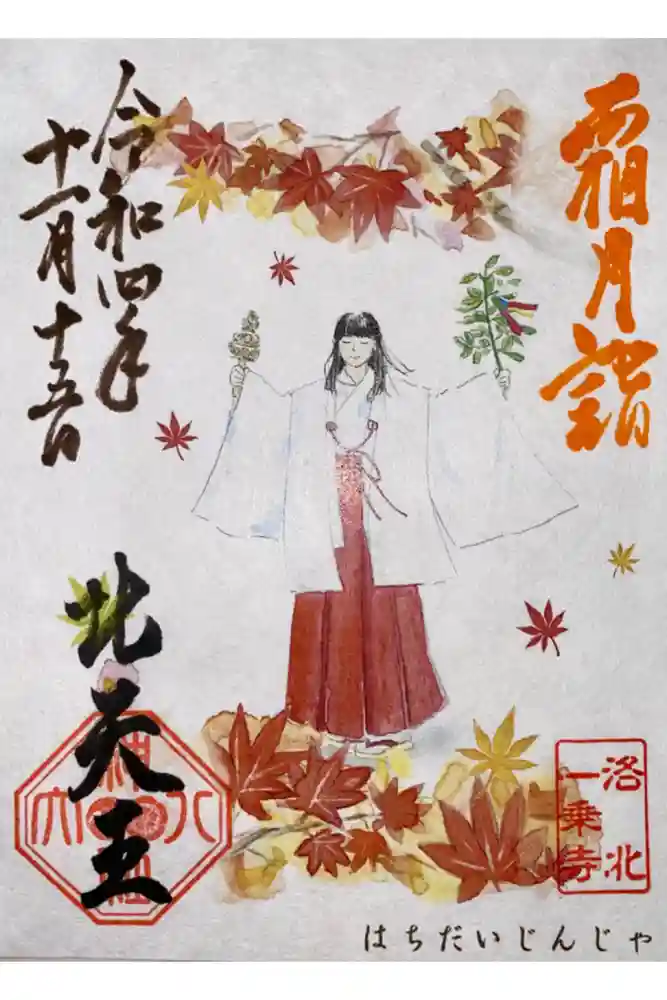 霜月詣
令和四年
十一月十五日
北天王
八大神社
洛北
一乗寺
はちだいじんじゃ